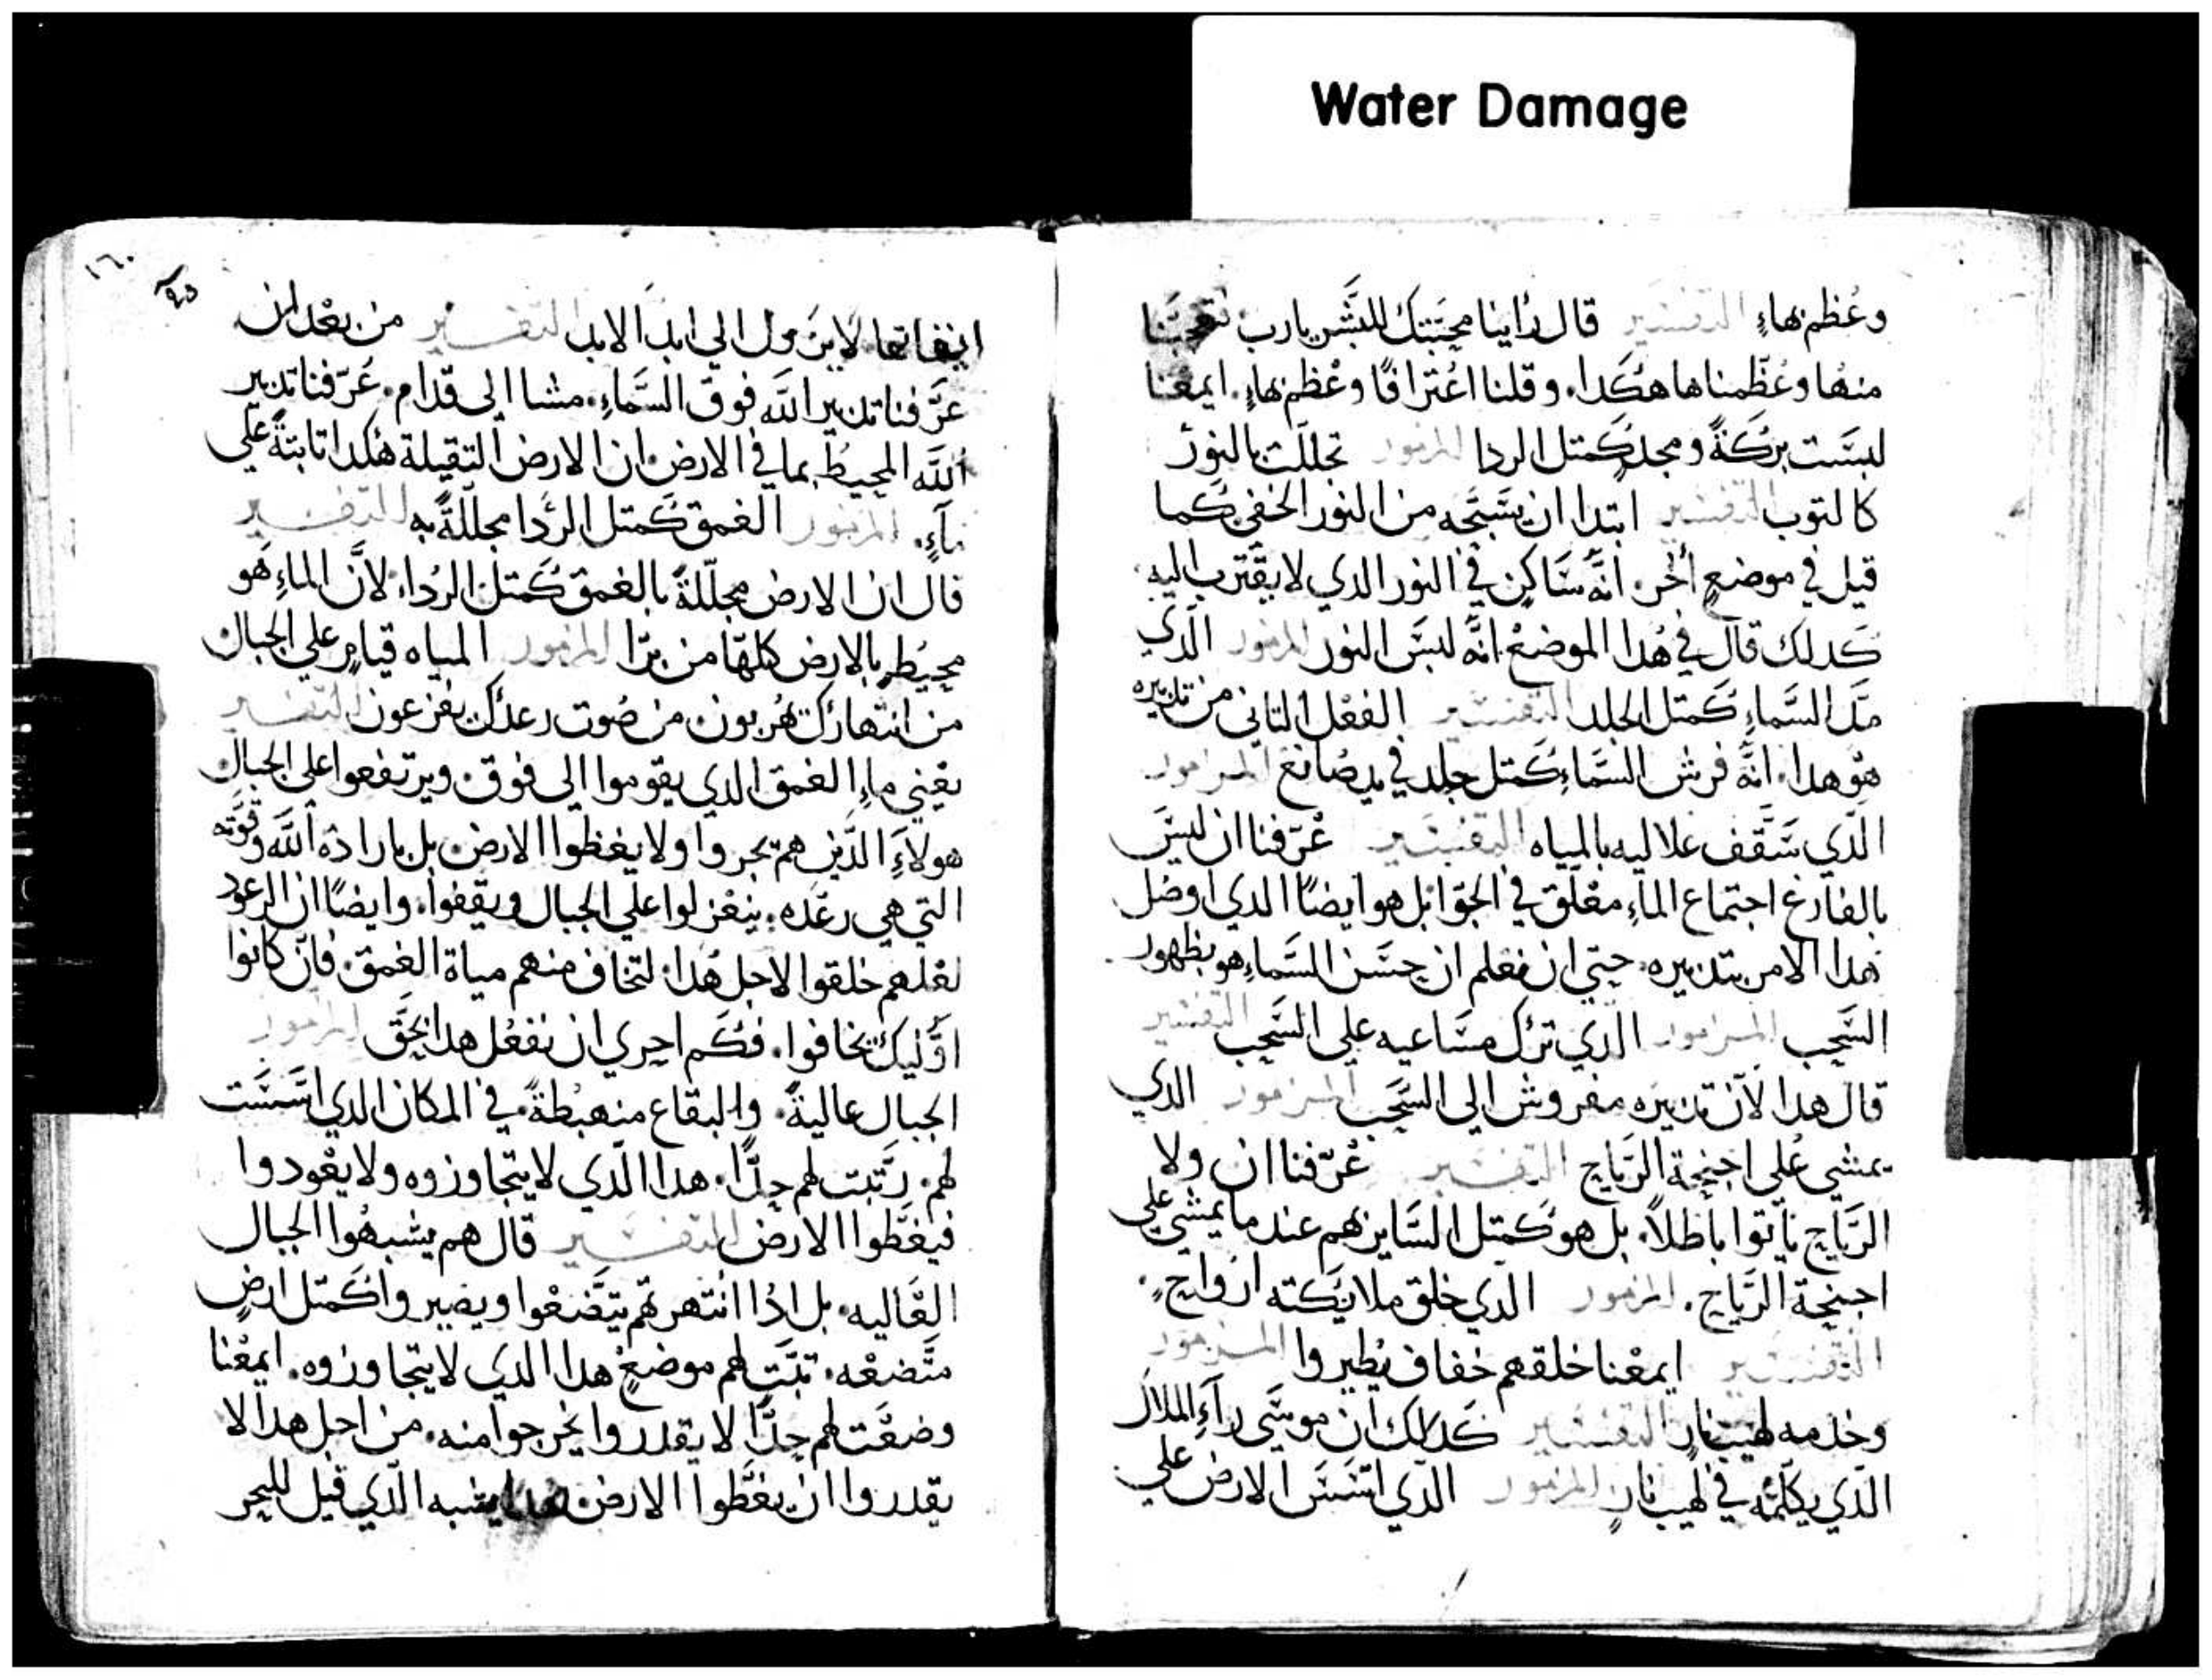 Water Damage
وعُظم بهاءٍ التفسير قال رأينا محبّتك للبشر يارب تعجبنا
منها وعُظّمناها هكدا. وقلنا اعُترافًا وعْظم بهاءٍ. ايمعْنا
لبسَت بركةً ومجدٍ كمتل الردا المزمور تجللت بالنورْ
كالتوب التفسير ابتدا ان يسَبّحه من النور الخفي كما
قيل في موضعٍ أخر. انهَّ سَاكن في النور الدي لا يقترب اليه
كدلك قال في هدا الموضعْ انهَّ لبسَ النور المزمور الدّي
مدّ السَّماءِ كمتل الجلد التفسير الفعْل التاني من تدبيره
هوْ هدا. انهَّ فرش السَّماءِ كمتل جلد في يد صانعْ المزمور
الّدي سَقف علاليه بالمياه التفسير عْرّفنا ان ليسَ
بالفارغ اجتماع الماءِ معْلّق في الجوّا بل هو ايضًا الدي اوصْل
هدا الامر بتدبيره. حتي ان نعلم ان حسَن السَّماءِ هو بظهور
السَّحب المزمور الّدي ترك مسَاعيه علي السَّحب التفسير
قال هدا لآن تدبيره مفروش الي السَّحب المزمور الدي
يمشي عُلي اجنحة الرَّياح التفسير عْرّفنا ان ولا
الرَّياح يأتوا باطلاً. بل هو كمتل السَّاير بهم عند ما يمشي علي
اجنحة الرَّياح. المزمور الّدي خلق ملايكته ارواحٍ.
التفسير ايمعْنا خلقهم خفاف يُطيروا المزمور
وخدمه لهيب نارٍ التفسير كدلك ان موسَي رآءِ الملاك
الّدي يكلّمه في لهيب نارٍ المزمور الدي اسّسَ الارض علي
١٦٠
اتفاتها لا يزول الي ابد الابد التفسير من بعْد ان
عرَّفنا تدبير اللَّه فوق السَّماءِ. مشا الي قدام. عَرّفنا تدبير
اللَّه المحيُط بما في الارض. ان الارض التقيلة هكدا تابتةً علي
مآءٍ. المزمور الغمق كمتل الرُدا مجللّةً به التفسير
قال ان الارض مجللّةً بالغمق كمتل الرُدا. لانَّ الماءِ هو
محيُطٍ بالارض كلهّا من برّا المزمور المياه قيامٍ علي الجبال
من انتهارك تهُربون من صُوت رعدك يفزعون التفسير
يعْني ماءِ الغمق الدي يقوموا الي فوق. ويرتفعوا علي الجبال
هولآءِ الدّين هم تجروا ولا يغطوا الارض. بل بارادة اللَّه وقوّته
التي هي رعْده. ينعْزلوا علي الجبال ويقفوا. وايضًا ان الرعود
لعْلهم خلقوا لاجل هُدا. لتخاف منهم مياة الغمق. فآن كانوا
اوّليك يخافوا. فكُم احري ان نفعُل هدا بحَقّ المزمور
الجبال عاليةً. والبقاع منهبُطةً. في المكان الدي اسَّسَت
لهم. رَتّبت لهم حدًّا. هدا الدّي لا يتجاوزوه ولا يعْودوا
فيغَطّوا الارض التفسير قال هم يشبهُوا الجبال
العْاليه. بل ادُا انتهرتهم يتَّضعْوا ويصْيروا كمتل ارضٍ
متَّضعْه. تبتَّ لهم موضعٍ هدا الدي لا يتجاوزوه. ايمعْنا
وضعْت لهم حدًّا لا يقدروا يخرجوا منه. من اجل هدا لا
يقدروا ان يغطَّوا الارض. هدا يشبه الّدي قيل للبحر